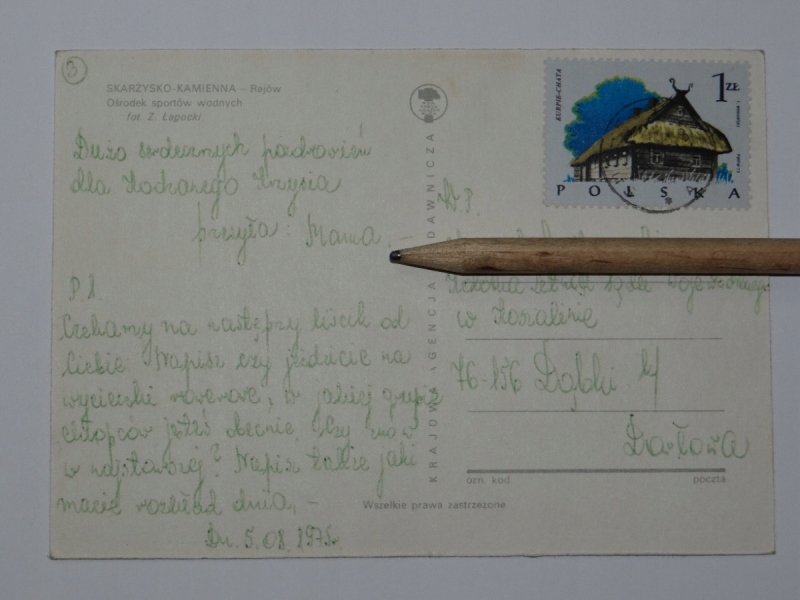 3
SKARŻYSKO-KAMIENNA – Rejów
Ośrodek sportów wodnych
fot. Z. Łagocki
Dużo serdecznych pozdrowień
dla Kochanego Krzysia
przysyła: Mama, –
P.S
Czekamy na następny liścik od
Ciebie. Napisz czy jeździcie na
wycieczki rowerowe, w jakiej grupie
chłopców jesteś obecnie, czy znów
w najstarszej? Napisz także jaki
macie rozkład dnia, –
Dn. 5.08.1975r.
KRAJOWA AGENCJA WYDAWNICZA
KURPIE-CHATA
1 ZŁ
POLSKA
W.P.
Kolonia
w Koszalinie
76-156 Dąbki k/
Darłowa
ozn. kod. poczta
Wszelkie prawa zastrzeżone